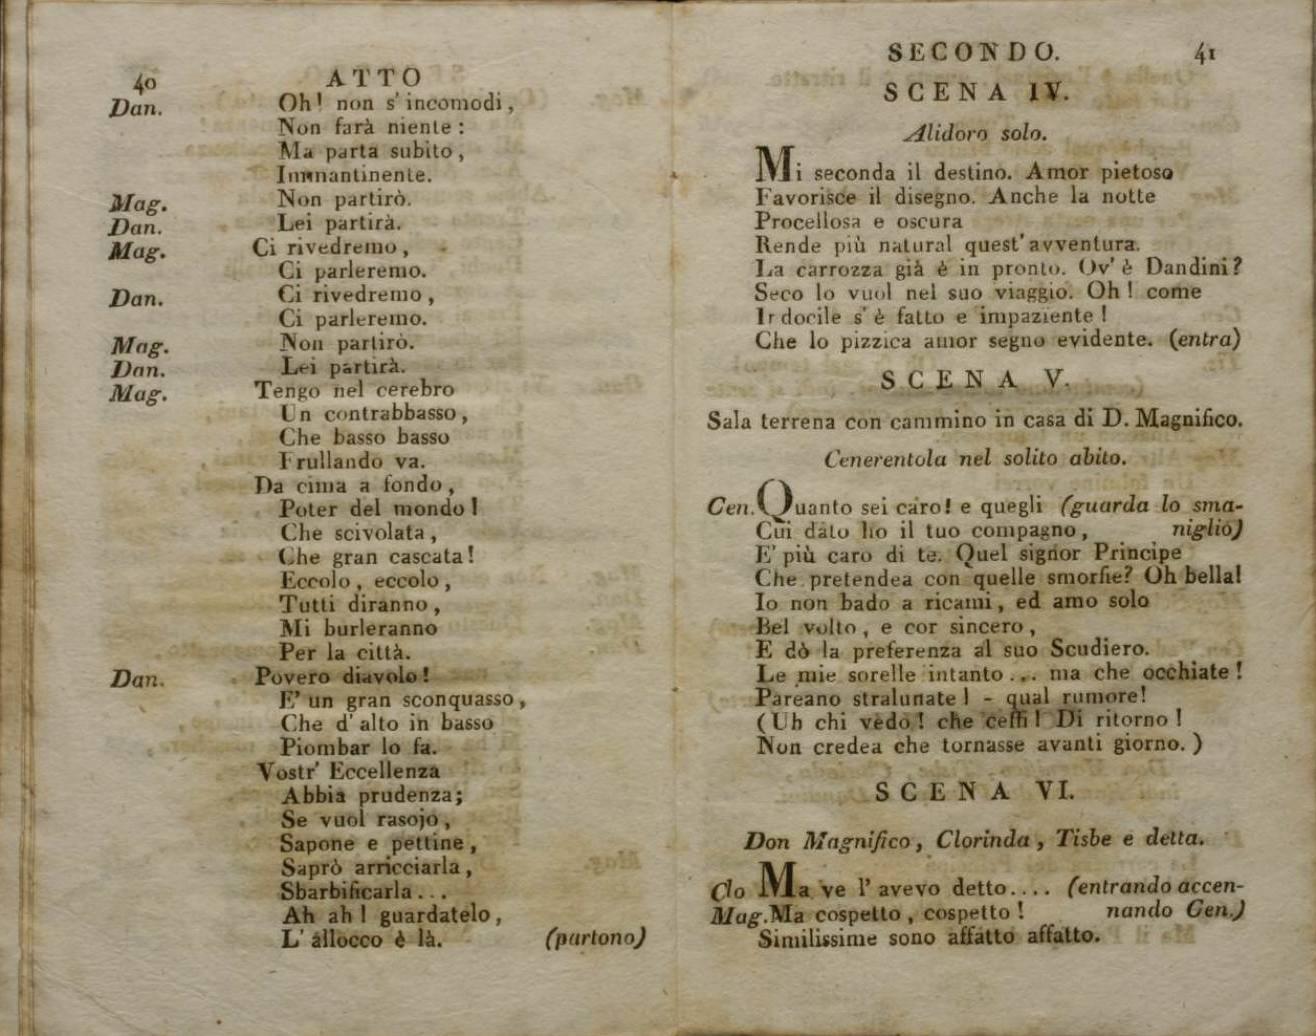 40 ATTO
Dan. Oh! non s'incomodi,
Non farà niente:
Ma parta subito,
Immantinente.
Mag. Non partirò.
Dan. Lei partirà.
Mag. Ci rivedremo,
Ci parleremo.
Dan. Ci rivedremo,
Ci parleremo.
Mag. Non partirò.
Dan. Lei partirà.
Mag. Tengo nel cerebro
Un contrabbasso,
Che basso basso
Frullando va.
Da cima a fondo,
Poter del mondo!
Che scivolata,
Che gran cascata!
Eccolo, eccolo,
Tutti diranno,
Mi burleranno
Per la città.
Dan. Povero diavolo!
E' un gran sconquasso,
Che d'alto in basso
Piombar lo fa.
Vostr' Eccellenza
Abbia prudenza;
Se vuol rasojo,
Sapone e pettine,
Saprò arricciarla,
Sbarbificarla...
Ah ah! guardatelo,
L'allocco è là. (partono)
SECONDO. 41
SCENA IV.
Alidoro solo.
Mi seconda il destino. Amor pietoso
Favorisce il disegno. Anche la notte
Procellosa e oscura
Rende più natural quest'avventura.
La carrozza già è in pronto. Ov'è Dandini?
Seco lo vuol nel suo viaggio. Oh! come
Indocile s'è fatto e impaziente!
Che lo pizzica amor segno evidente. (entra)
SCENA V.
Sala terrena con cammino in casa di D. Magnifico.
Cenerentola nel solito abito.
Cen. Quanto sei caro! e quegli (guarda lo sma-
Cui dato ho il tuo compagno, niglio)
E' più caro di te. Quel signor Principe
Che pretendea con quelle smorfie? Oh bella!
Io non bado a ricami, ed amo solo
Bel volto, e cor sincero,
E dò la preferenza al suo Scudiero.
Le mie sorelle intanto... ma che occhiate!
Pareano stralunate! - qual rumore!
(Uh chi vedo! che ceffi! Di ritorno!
Non credea che tornasse avanti giorno.)
SCENA VI.
Don Magnifico, Clorinda, Tisbe e detta.
Clo Ma ve l'avevo detto.... (entrando accen-
Mag. Ma cospetto, cospetto! nando Cen.)
Similissime sono affatto affatto.